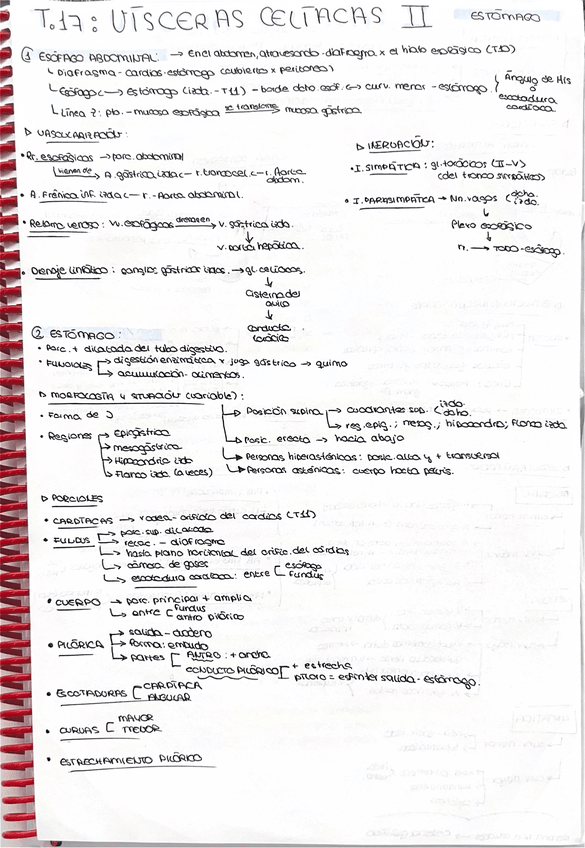 T.17: VÍSCERAS CELÍACAS II ESTÓMAGO
① ESÓFAGO ABDOMINAL: → En el abdomen, atravesando - diafragma x el hiato esofágico (T10)
↳ Diafragma - cardias - estómago (cubierto x peritoneo)
↳ Esófago ↔ estómago (izda - T11) - borde dcho esóf. ↔ curv. menor - estómago. Ángulo de His o escotadura cardíaca
↳ Línea Z: pto. - mucosa esofágica se transforma mucosa gástrica
▷ VASCULARIZACIÓN:
• Ar. esofágicas → porc. abdominal
↳ vienen de A. gástrica izda ← r. tronco cel ← r. Aorta abdom.
• A. Frénica inf. izda ← r. - Aorta abdominal.
• Retorno venoso: Vv. esofágicas drenan en v. gástrica izda.
↓
v. porta hepática.
• Drenaje linfático: ganglios gástricos izdos. → gl. celíacos.
↓
Cisterna del quilo
↓
conducto torácico
▷ INERVACIÓN:
• I. SIMPÁTICA: gl. torácicos (II-V) (del tronco simpático)
• I. PARASIMPÁTICA → Nn. vagos dcho. izdo.
↓
Plexo esofágico
↓
n. → TODO - esófago.
② ESTÓMAGO:
• Porc. + dilatada del tubo digestivo.
• FUNCIONES → digestión enzimática x jugo gástrico → quimo
↳ acumulación - alimentos.
▷ MORFOLOGÍA Y SITUACIÓN (variable):
• Forma de J
• Regiones → Epigástrica
→ mesogástrica
→ Hipocondrio izdo
↳ Flanco izdo (a veces)
↳ Posición supina → cuadrantes sup. izdo. dcho.
↳ reg. epig.; mesog.; hipocondrio; Flanco izda
↳ Posic. erecta → hacia abajo
↳ Personas hiperasténicas: posic. alta y + transversal
↳ Personas asténicas: cuerpo hacia pelvis.
▷ PORCIONES
• CARDÍACAS → rodea - orificio del cardias (T11)
• FUNDUS → porc. sup. dilatada
→ relac. - diafragma
↳ hasta plano horizontal del orific. del cardias
↳ cámara de gases
↳ escotadura cardíaca: entre [ esófago fundus
• CUERPO → porc. principal + amplia
↳ entre [ fundus antro pilórico
• PILÓRICA → salida - duodeno
→ forma: embudo
↳ partes [ ANTRO: + ancha
CONDUCTO PILÓRICO [ + estrecha
píloro = esfínter salida - estómago.
• ESCOTADURAS [ CARDÍACA
ANGULAR
• CURVAS [ MAYOR
MENOR
• ESTRECHAMIENTO PILÓRICO